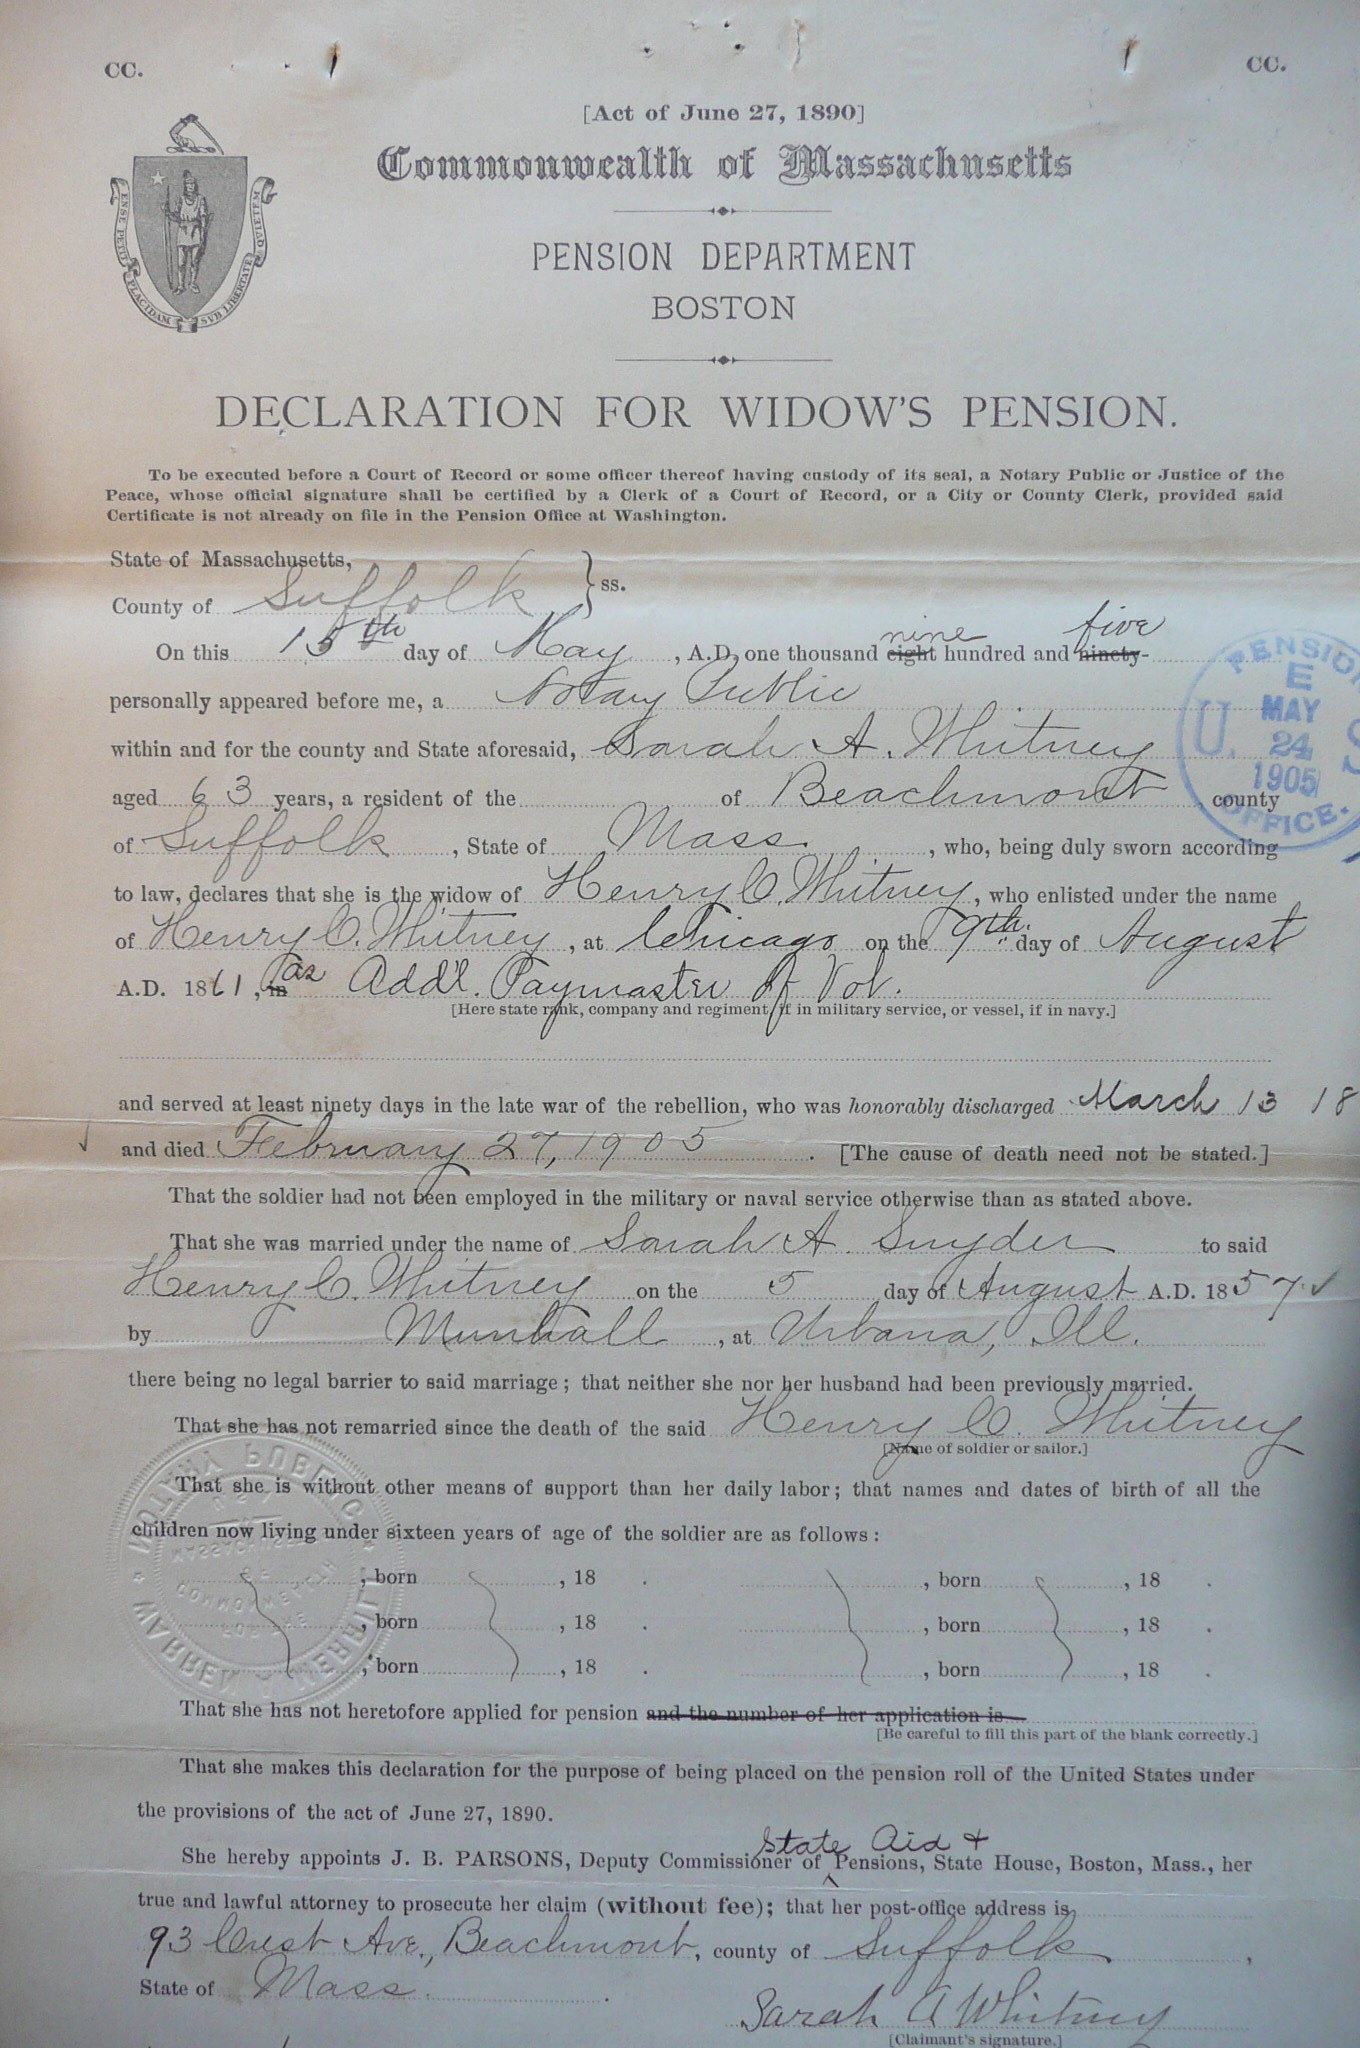 CC. CC.
[Act of June 27, 1890]
Commonwealth of Massachusetts
ENSE PETIT PLACIDAM SVB LIBERTATE QVIETEM
PENSION DEPARTMENT
BOSTON
DECLARATION FOR WIDOW'S PENSION.
To be executed before a Court of Record or some officer thereof having custody of its seal, a Notary Public or Justice of the
Peace, whose official signature shall be certified by a Clerk of a Court of Record, or a City or County Clerk, provided said
Certificate is not already on file in the Pension Office at Washington.
State of Massachusetts,
County of Suffolk } ss.
nine five
On this 15th day of May, A.D. one thousand eight hundred and ninety-
personally appeared before me, a Notary Public
within and for the county and State aforesaid, Sarah A. Whitney
aged 63 years, a resident of the of Beachmont, county
of Suffolk, State of Mass., who, being duly sworn according
to law, declares that she is the widow of Henry C. Whitney, who enlisted under the name
of Henry C. Whitney, at Chicago on the 9th. day of August
A.D. 1861, in as Add'l. Paymaster of Vol.
[Here state rank, company and regiment, if in military service, or vessel, if in navy.]
and served at least ninety days in the late war of the rebellion, who was honorably discharged March 13 18
and died February 27, 1905. [The cause of death need not be stated.]
That the soldier had not been employed in the military or naval service otherwise than as stated above.
That she was married under the name of Sarah A. Snyder to said
Henry C. Whitney on the 5 day of August A.D. 1857.
by Munhall, at Urbana, Ill.
there being no legal barrier to said marriage; that neither she nor her husband had been previously married.
That she has not remarried since the death of the said Henry C. Whitney
[Name of soldier or sailor.]
That she is without other means of support than her daily labor; that names and dates of birth of all the
children now living under sixteen years of age of the soldier are as follows:
, born , 18 . , born , 18 .
, born , 18 . , born , 18 .
, born , 18 . , born , 18 .
That she has not heretofore applied for pension and the number of her application is
[Be careful to fill this part of the blank correctly.]
That she makes this declaration for the purpose of being placed on the pension roll of the United States under
the provisions of the act of June 27, 1890.
State Aid +
She hereby appoints J. B. PARSONS, Deputy Commissioner of Pensions, State House, Boston, Mass., her
true and lawful attorney to prosecute her claim (without fee); that her post-office address is
93 Crest Ave., Beachmont, county of Suffolk,
State of Mass.
Sarah A Whitney
[Claimant's signature.]
U. S. PENSION OFFICE.
MAY
24
1905
NOTARY PUBLIC
WARREN MERRILL
COMMONWEALTH
MASSACHUSETTS